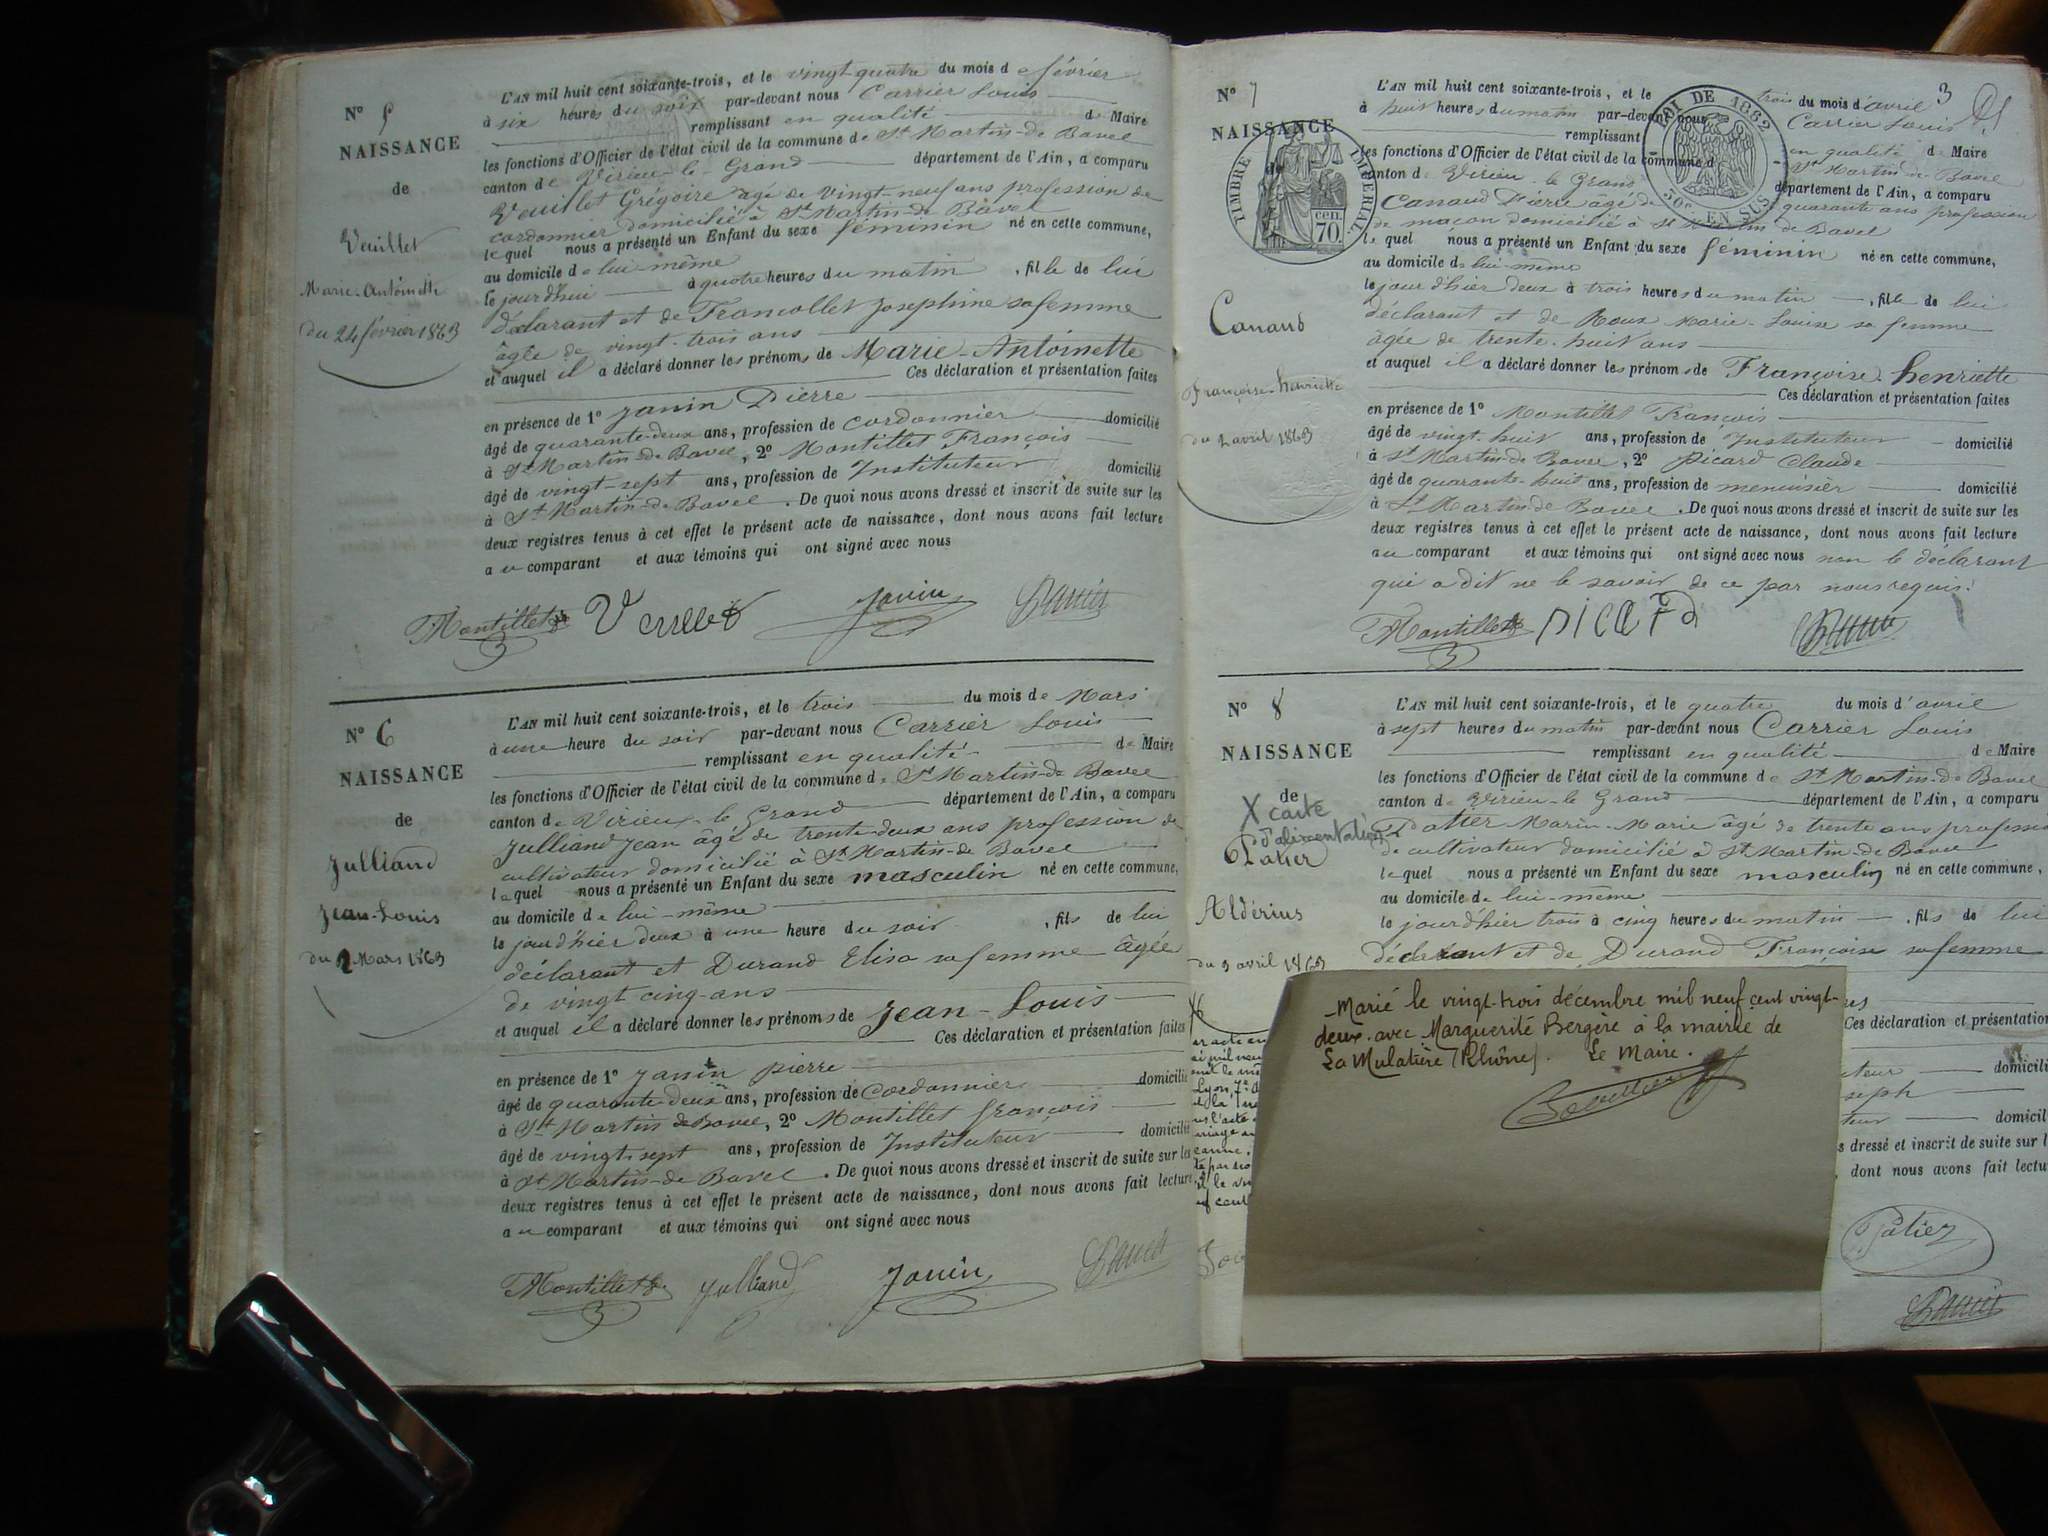 N° 5
NAISSANCE
de
Veuillet
Marie-Antoinette
du 24 février 1863
L'AN mil huit cent soixante-trois, et le vingt-quatre du mois de février
à six heures du soir par-devant nous Carrier Louis
remplissant en qualité de Maire
les fonctions d'Officier de l'état civil de la commune de St Martin-de Bavel
canton de Virieu-le-Grand département de l'Ain, a comparu
Veuillet Grégoire âgé de vingt-neuf ans profession de
cordonnier domicilié à St Martin-de Bavel
lequel nous a présenté un Enfant du sexe féminin né en cette commune,
au domicile de lui-même
le jourd'hui à quatre heures du matin, fille de lui
déclarant et de Francollet Josephine sa femme
âgée de vingt-trois ans
et auquel il a déclaré donner les prénoms de Marie-Antoinette
Ces déclaration et présentation faites
en présence de 1° Janin Pierre
âgé de quarante-deux ans, profession de cordonnier domicilié
à St Martin-de Bavel, 2° Montillet François
âgé de vingt-sept ans, profession de Instituteur domicilié
à St Martin-de Bavel. De quoi nous avons dressé et inscrit de suite sur les
deux registres tenus à cet effet le présent acte de naissance, dont nous avons fait lecture
au comparant et aux témoins qui ont signé avec nous
Montillet Veuillet Janin
N° 6
NAISSANCE
de
Julliand
Jean-Louis
du 2 Mars 1863
L'AN mil huit cent soixante-trois, et le trois du mois de Mars
à une heure du soir par-devant nous Carrier Louis
remplissant en qualité de Maire
les fonctions d'Officier de l'état civil de la commune de St Martin-de Bavel
canton de Virieu-le Grand département de l'Ain, a comparu
Julliand Jean âgé de trente-deux ans profession de
cultivateur domicilié à St Martin-de Bavel
lequel nous a présenté un Enfant du sexe masculin né en cette commune,
au domicile de lui-même
le jourd'hier deux à une heure du soir, fils de lui
déclarant et Durand Elisa sa femme âgée
de vingt cinq-ans
et auquel il a déclaré donner les prénoms de Jean-Louis
Ces déclaration et présentation faites
en présence de 1° Janin pierre
âgé de quarante-deux ans, profession de Cordonnier domicilié
à St Martin de Bavel, 2° Montillet françois
âgé de vingt-sept ans, profession de Instituteur domicilié
à St Martin-de Bavel. De quoi nous avons dressé et inscrit de suite sur les
deux registres tenus à cet effet le présent acte de naissance, dont nous avons fait lecture
au comparant et aux témoins qui ont signé avec nous
Montillet Julliand Janin
3
N° 7
NAISSANCE
de
Canaud
Françoise-henriette
du 2 avril 1863
TIMBRE IMPERIAL
cen. 70.
LOI DE 1862
50c EN SUS
L'AN mil huit cent soixante-trois, et le trois du mois d'avril
à huit heures du matin par-devant nous Carrier Louis
remplissant en qualité de Maire
les fonctions d'Officier de l'état civil de la commune de St Martin-de Bavel
canton de Virieu-le Grand département de l'Ain, a comparu
Canaud Pierre âgé de quarante ans profession
de maçon domicilié à St Martin de Bavel
lequel nous a présenté un Enfant du sexe féminin né en cette commune,
au domicile de lui-même
le jourd'hier deux à trois heures du matin, fille de lui
déclarant et de Roux Marie-Louise sa femme
âgée de trente-huit ans
et auquel il a déclaré donner les prénoms de Françoise-henriette
Ces déclaration et présentation faites
en présence de 1° Montillet François
âgé de vingt-huit ans, profession de Instituteur domicilié
à St Martin-de Bavel, 2° Picard Claude
âgé de quarante-huit ans, profession de menuisier domicilié
à St Martin de Bavel. De quoi nous avons dressé et inscrit de suite sur les
deux registres tenus à cet effet le présent acte de naissance, dont nous avons fait lecture
au comparant et aux témoins qui ont signé avec nous non le déclarant
qui a dit ne le savoir de ce par nous requis.
Montillet PICARD
N° 8
NAISSANCE
de
X carte
d'alimentation
Patier
Aldérius
du 3 avril 1863
L'AN mil huit cent soixante-trois, et le quatre du mois d'avril
à sept heures du matin par-devant nous Carrier Louis
remplissant en qualité de Maire
les fonctions d'Officier de l'état civil de la commune de St Martin-de Bavel
canton de Virieu-le Grand département de l'Ain, a comparu
Patier Marin-Marie âgé de trente ans profess
de cultivateur domicilié à St Martin de Bavel
lequel nous a présenté un Enfant du sexe masculin né en cette commune,
au domicile de lui-même
le jourd'hier trois à cinq heures du matin, fils de lui
déclarant et de Durand Françoise sa femme
Ces déclaration et présentation
domicili
seph
domicil
dressé et inscrit de suite sur l
, dont nous avons fait lectu
Lyon 7e
Marié le vingt-trois décembre mil neuf cent vingt-
deux avec Marguerite Bergère à la mairie de
La Mulatière (Rhône). Le Maire.
Patier